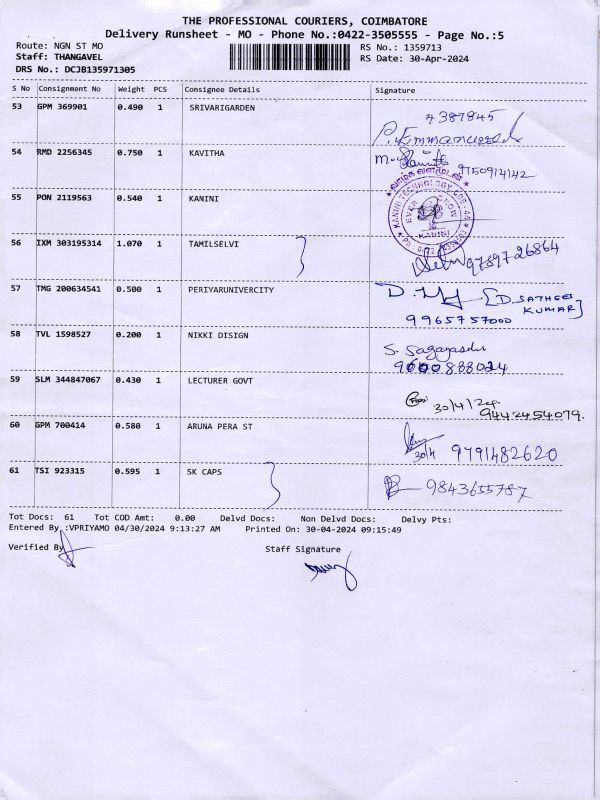 THE PROFESSIONAL COURIERS, COIMBATORE
Delivery Runsheet - MO - Phone No.:0422-3505555 - Page No.:5
Route: NGN ST MO
RS No.: 1359713
Staff: THANGAVEL
RS Date: 30-Apr-2024
DRS No.: DCJB135971305
S No Consignment No Weight PCS Consignee Details Signature
53 GPM 369901 0.490 1 SRIVARIGARDEN
4387845
54 RMD 2256345 0.750 1 KAVITHA
9750914142
வாழ்க வளமுடன்
55 PON 2119563 0.540 1 KANINI
EVER GROW
KANINI
56 IXM 303195314 1.070 1 TAMILSELVI
9789726864
57 TMG 200634541 0.500 1 PERIYARUNIVERCITY
[D SATHEES
KUMAR]
9965757000
58 TVL 1598527 0.200 1 NIKKI DISIGN
59 SLM 344847067 0.430 1 LECTURER GOVT
30/4/
9442454079.
60 GPM 700414 0.580 1 ARUNA PERA ST
30/4 9791482620
61 TSI 923315 0.595 1 SK CAPS
9843655787
Tot Docs: 61 Tot COD Amt: 0.00 Delvd Docs: Non Delvd Docs: Delvy Pts:
Entered By :VPRIYAMO 04/30/2024 9:13:27 AM Printed On: 30-04-2024 09:15:49
Verified By
Staff Signature